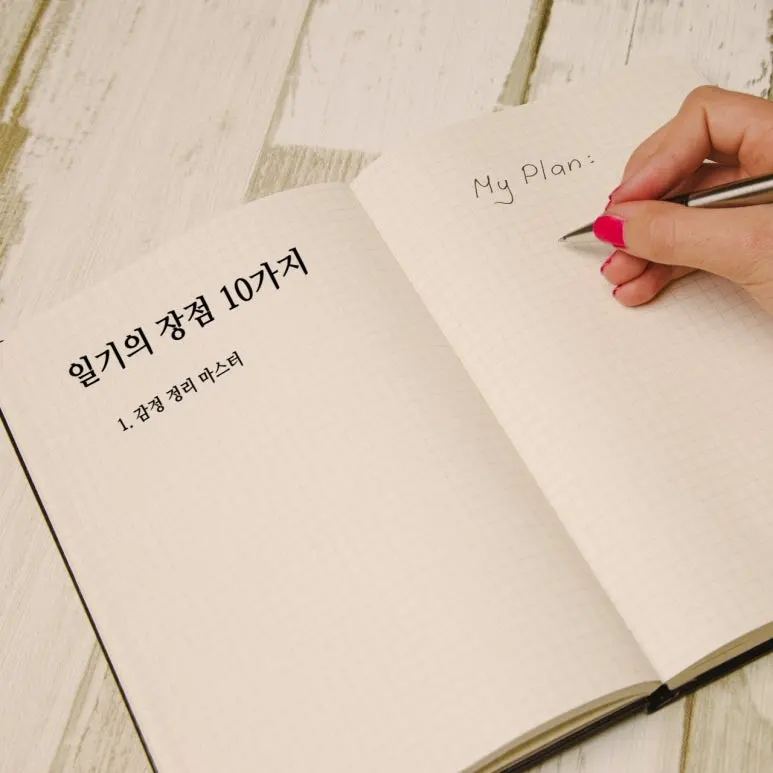 일기의 장점 10가지
1. 감정 정리 마스터
My Plan: